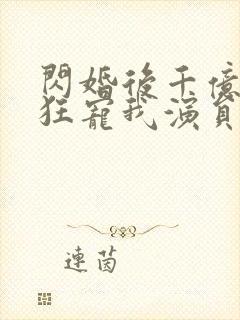 閃婚後千億
狂寵我演員
連茵